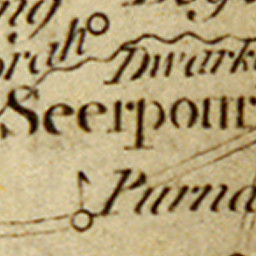 orah
Dwark
Seerpour
Purna